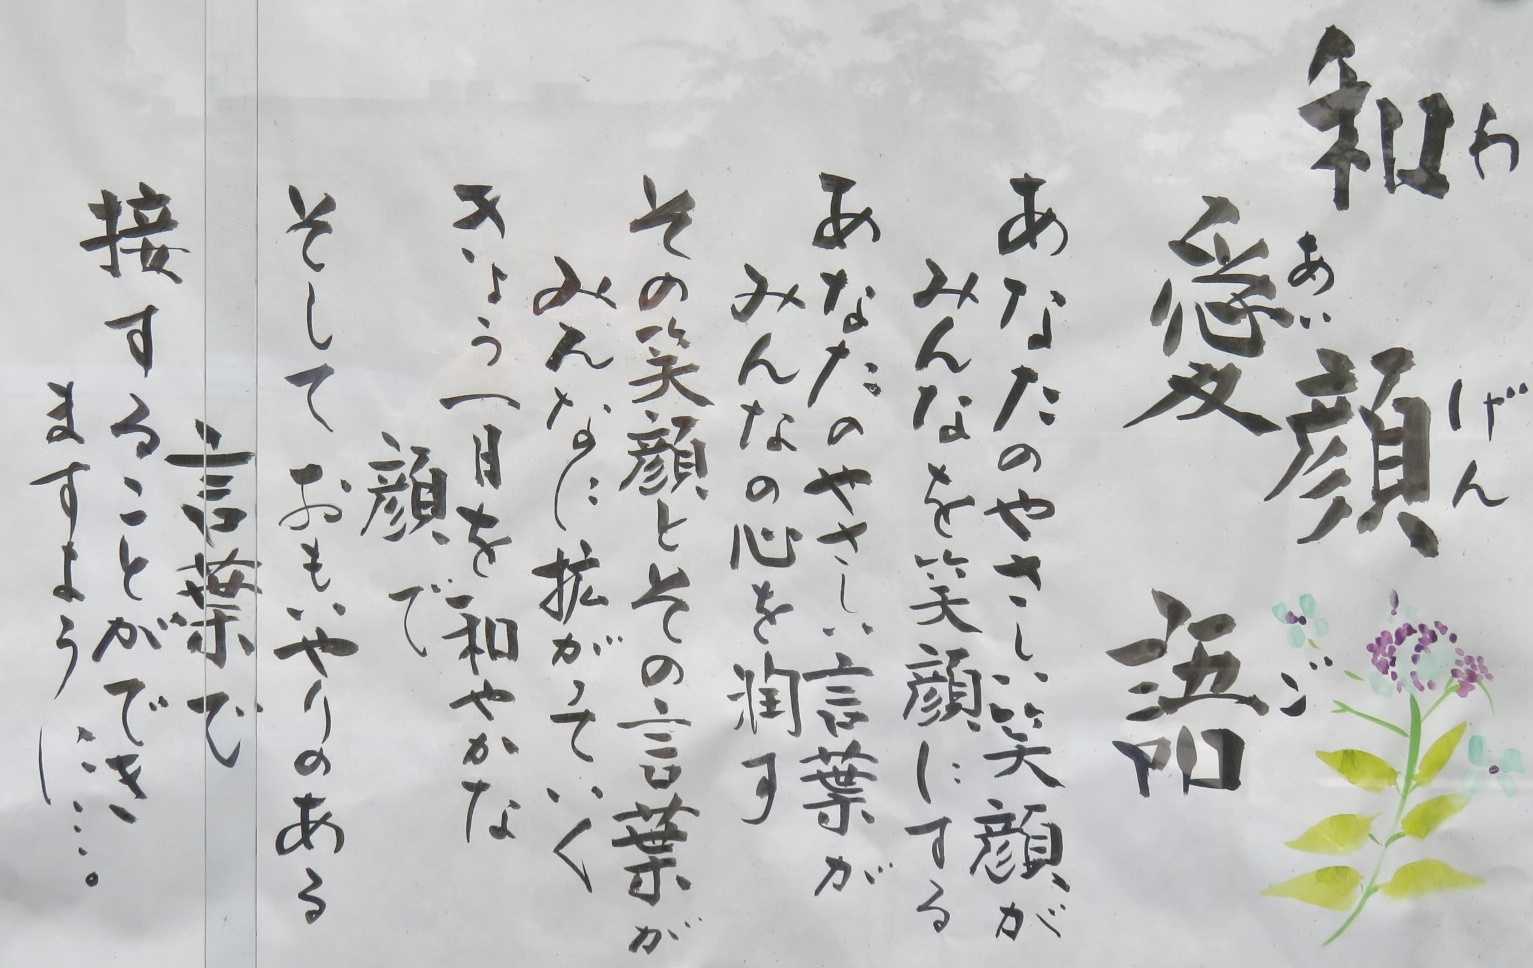 和顔愛語
わ げん あい ご
あなたのやさしい笑顔が
みんなを笑顔にする
あなたのやさしい言葉が
みんなの心を潤す
その笑顔とその言葉が
みんなに拡がっていく
きょう一日を和やかな
顔で
そして おもいやりのある
言葉で
接することができ
ますように…。